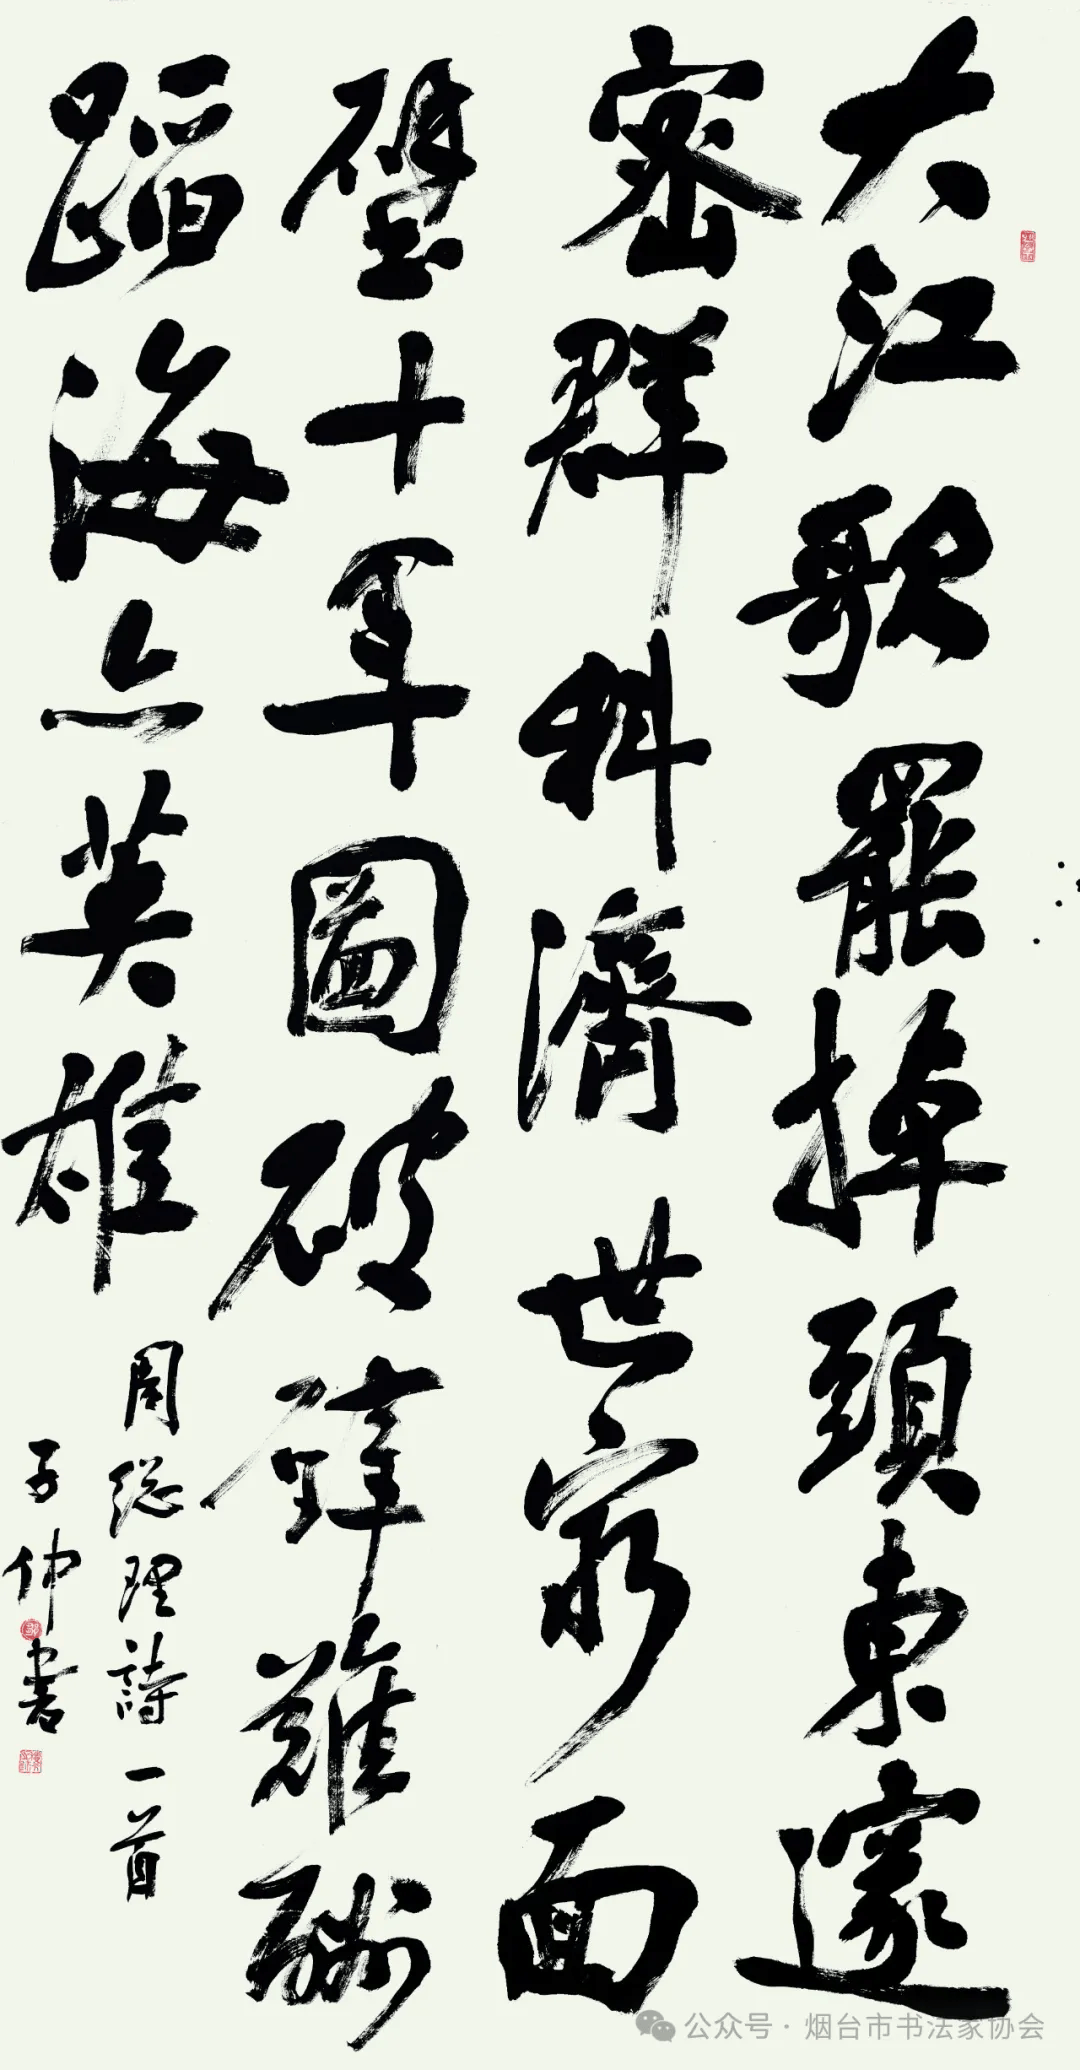 大江歌罷掉頭東邃
密群科濟世窮面
壁十年圖破壁難酬
蹈海亦英雄
周総理詩一首
子仲書
公众号 · 烟台市书法家协会